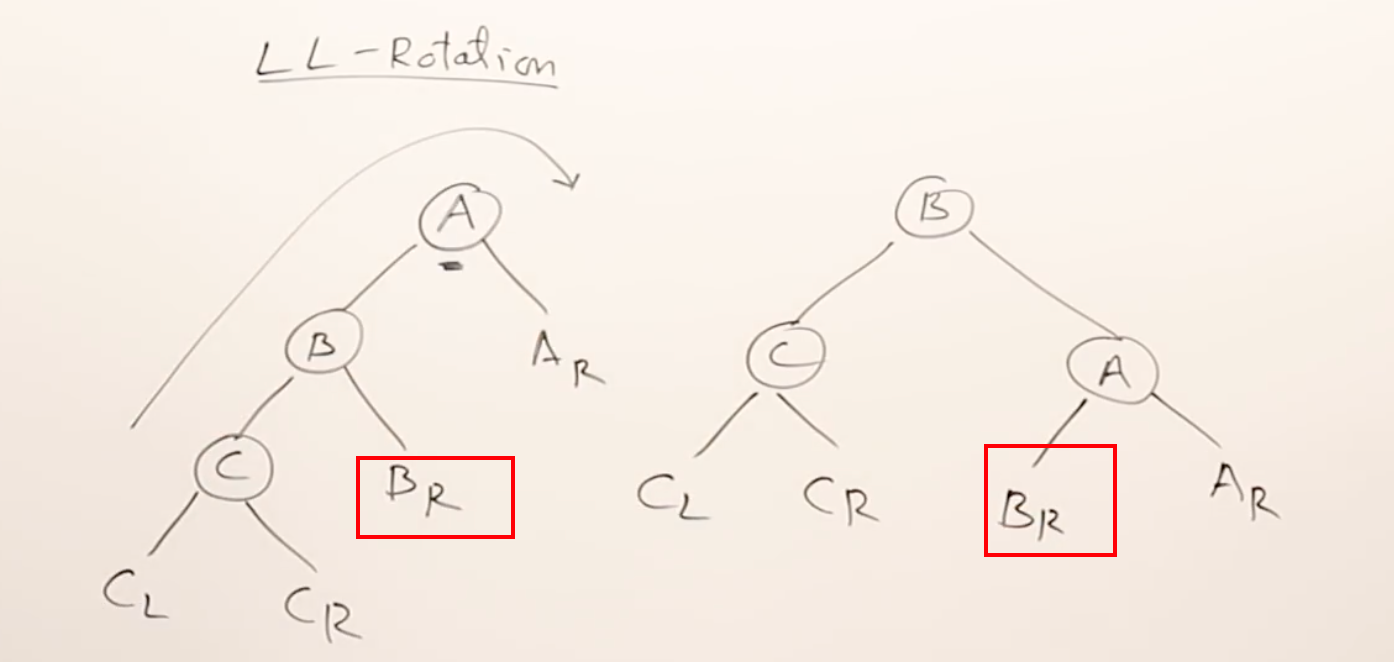 LL-Rotation
A
B
A_R
C
B_R
C_L
C_R
B
C
A
C_L
C_R
B_R
A_R